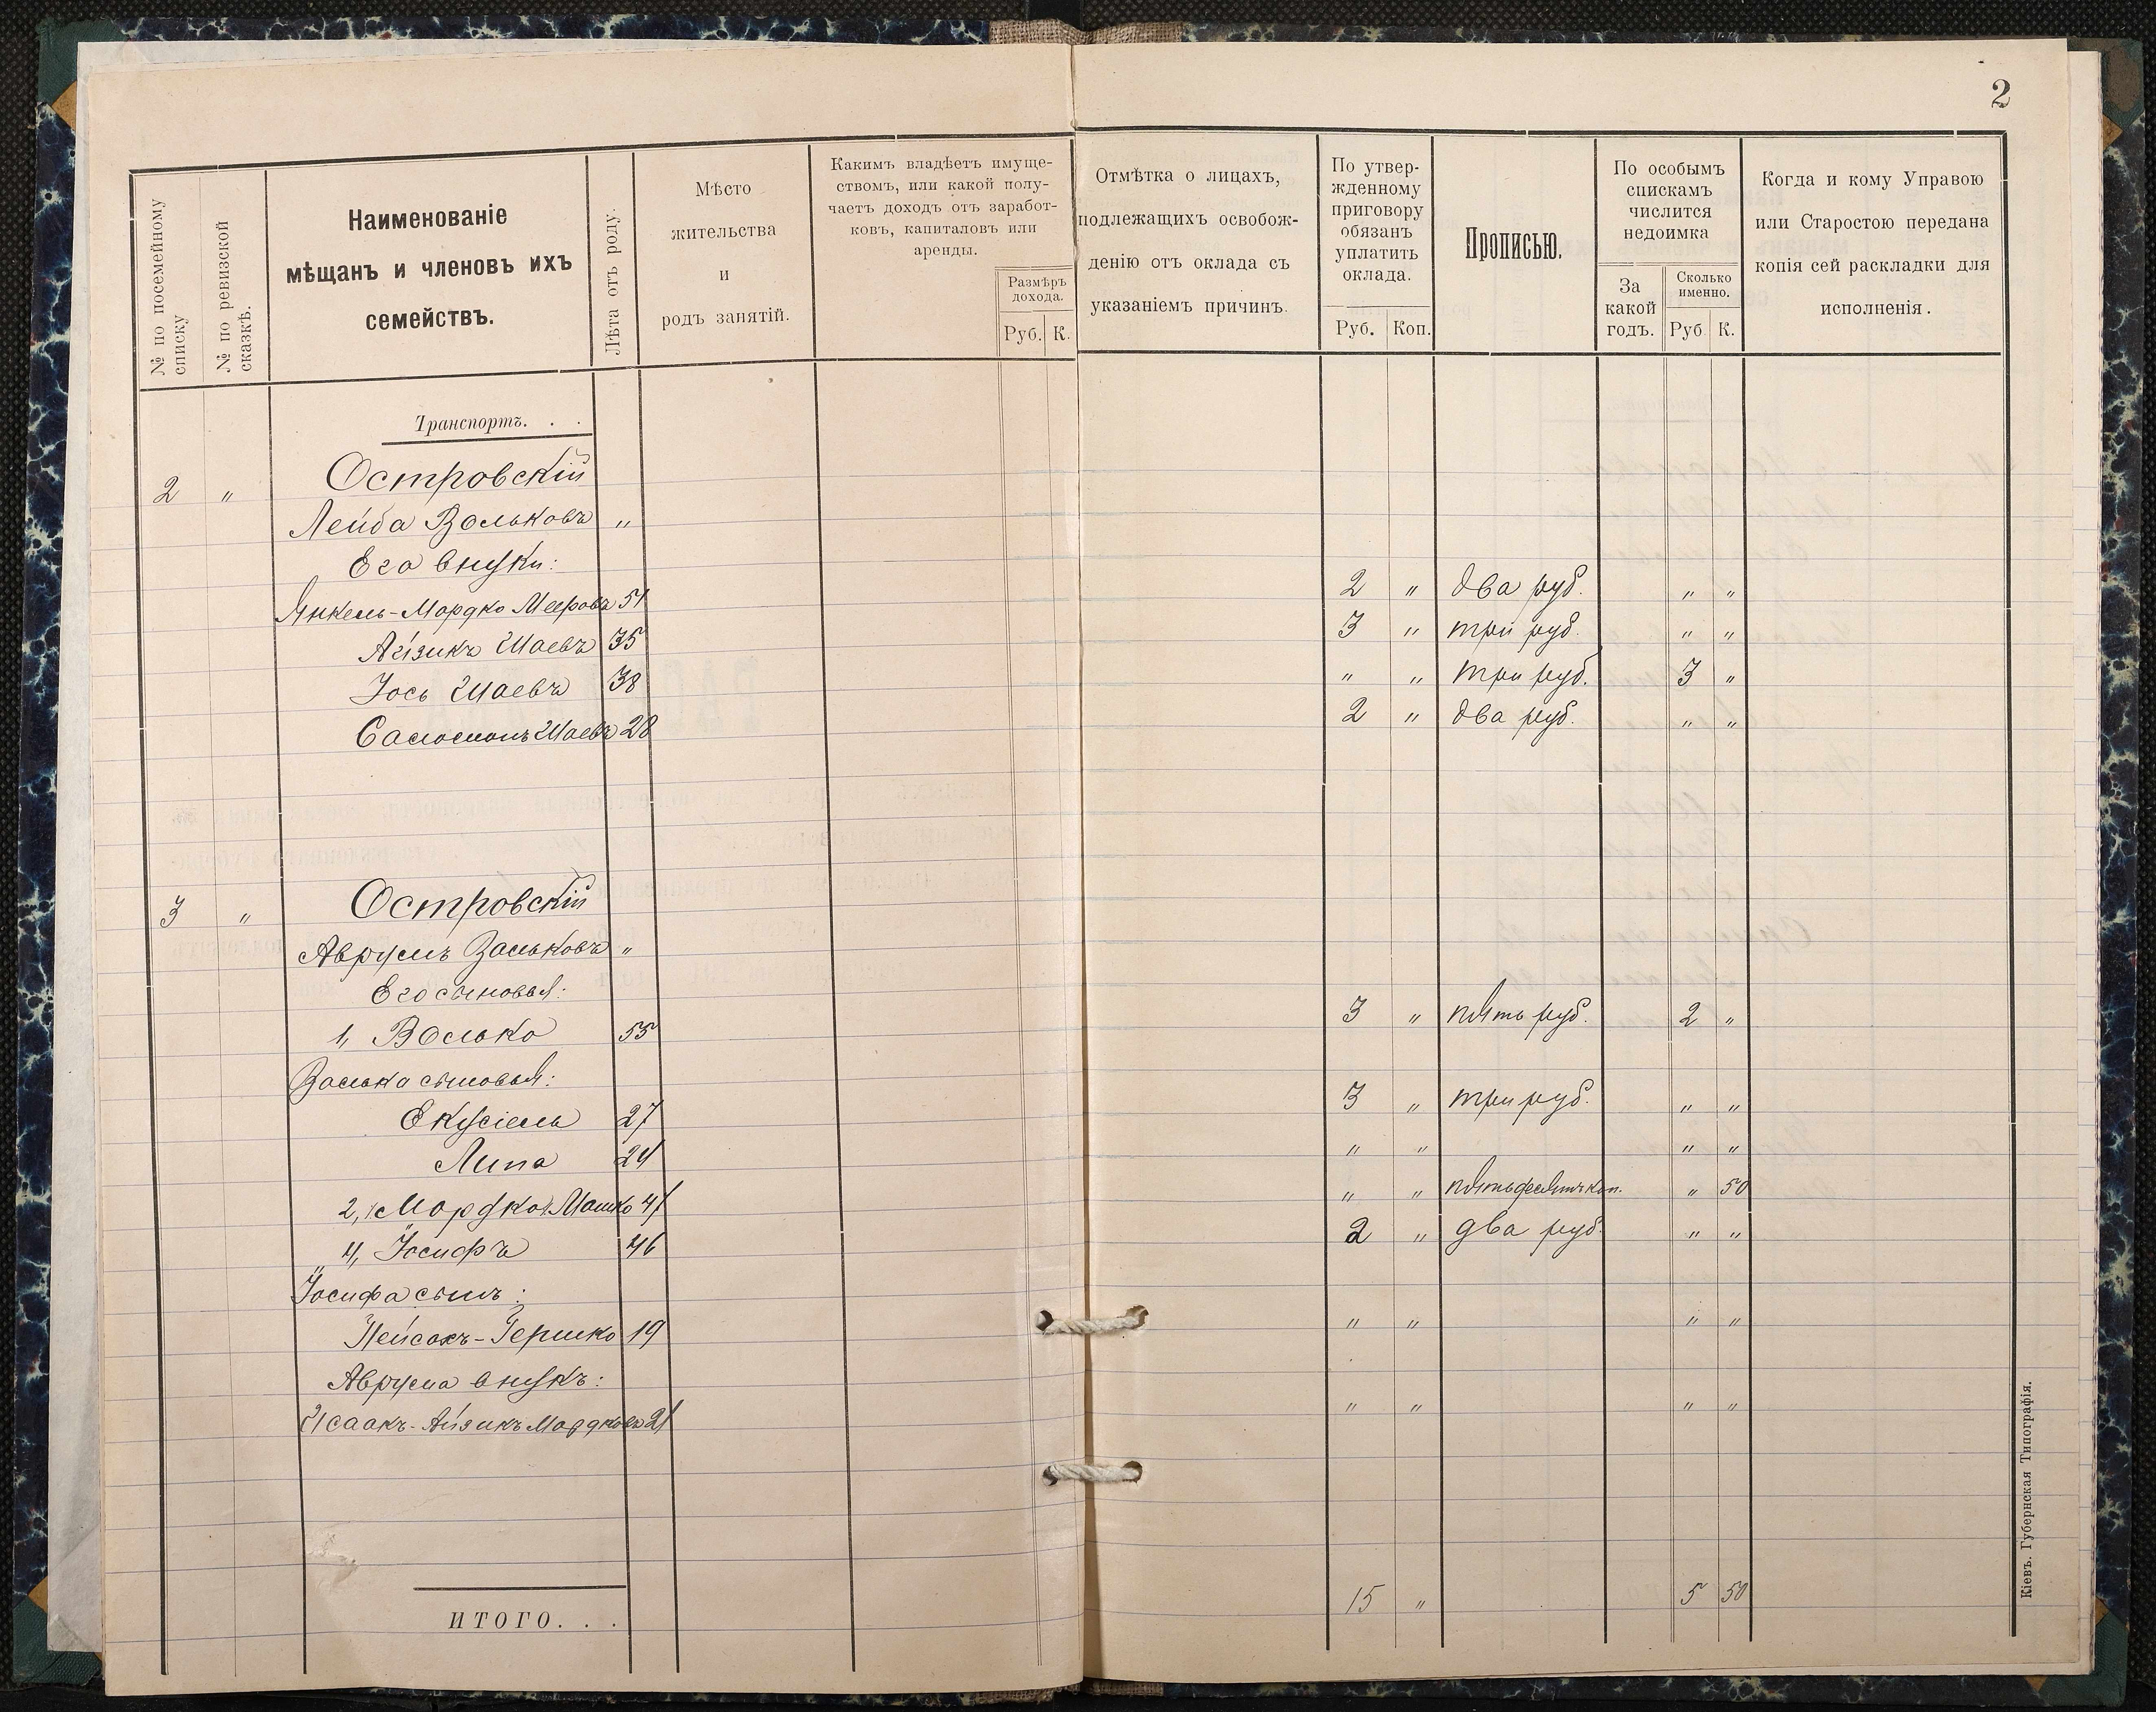 2
№ по посемейному
списку
№ по ревизской
сказкѣ.
Наименованіе
мѣщанъ и членовъ ихъ
семействъ.
Лѣта отъ роду.
Мѣсто
жительства
и
родъ занятій.
Какимъ владѣетъ имуще-
ствомъ, или какой полу-
чаетъ доходъ отъ заработ-
ковъ, капиталовъ или
аренды.
Размѣръ
дохода.
Руб. К.
Отмѣтка о лицахъ,
подлежащихъ освобож-
денію отъ оклада съ
указаніемъ причинъ.
По утвер-
жденному
приговору
обязанъ
уплатить
оклада.
Руб. Коп.
Прописью.
По особымъ
спискамъ
числится
недоимка
За
какой
годъ.
Сколько
именно.
Руб. К.
Когда и кому Управою
или Старостою передана
копія сей раскладки для
исполненія.
Транспортъ. . .
2 " Островскій
Лейба Вольковъ "
Его внуки:
Янкель-Мордко Мееровъ 51 2 " два руб. " "
Айзикъ Шаевъ 35 3 " три руб. " "
Іось Шаевъ 38 " " три руб. 3 "
Соломонъ Шаевъ 28 2 " два руб. " "
3 " Островскій
Аврумъ Вольковъ "
Его сыновья:
1, Волько 55 3 " пять руб. 2 "
Волька сыновья:
Екусіель 27 3 " три руб. " "
Липа 24 " " " "
2, Мордко Мошко 41 " " пятьдесятъ коп. " 50
4, Іосифъ 46 2 " два руб. " "
Іосифа сынъ:
Пейсахъ-Гершко 19 " " " "
Аврума внукъ:
Исаакъ-Айзикъ Мордковъ 21 " " " "
ИТОГО. . . 15 " 5 50
Кіевъ. Губернская Типографія.